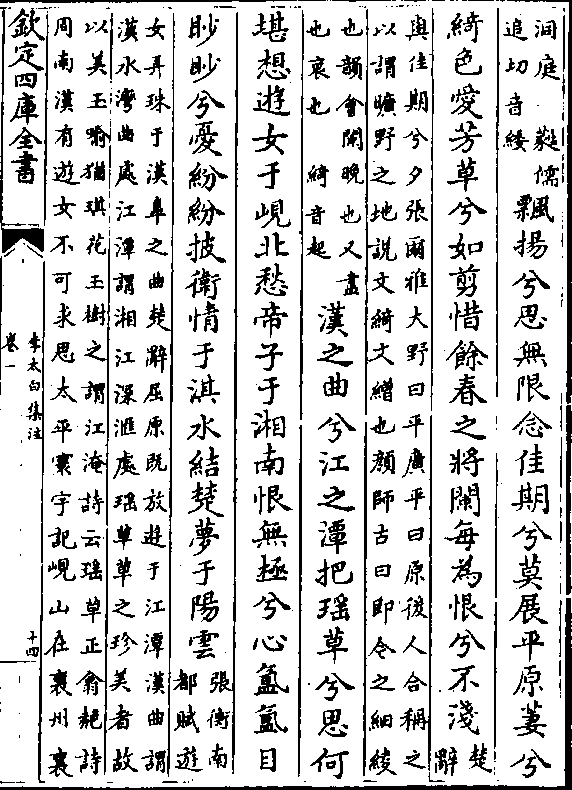 洞庭　㠜儒
追切音緌
飄揚兮思無限念佳期兮莫展平原萋兮
綺色愛芳草兮如剪惜餘春之將闌每為恨兮不淺
楚辭
與佳期兮夕張爾雅大野曰平廣平曰原後人合稱之
以謂曠野之地說文綺文繒也顏師古曰即今之細綾
也韻會闌晚也又盡
也衰也　綺音起
漢之曲兮江之潭把瑶草兮思何
堪想遊女于峴北愁帝子于湘南恨無極兮心氳氳目
眇眇兮憂紛紛披衛情于淇水結楚夢于陽雲
張衡南
都賦遊
女弄珠于漢臯之曲楚辭屈原既放遊于江潭漢曲謂
漢水灣曲處江潭謂湘江深滙處瑶草草之珍美者故
以美玉喻猶琪花玉樹之謂江淹詩云瑶草正翕赩詩
周南漢有遊女不可求思太平寰宇記峴山在襄州襄
欽定四庫全書
李太白集注
卷一
十四